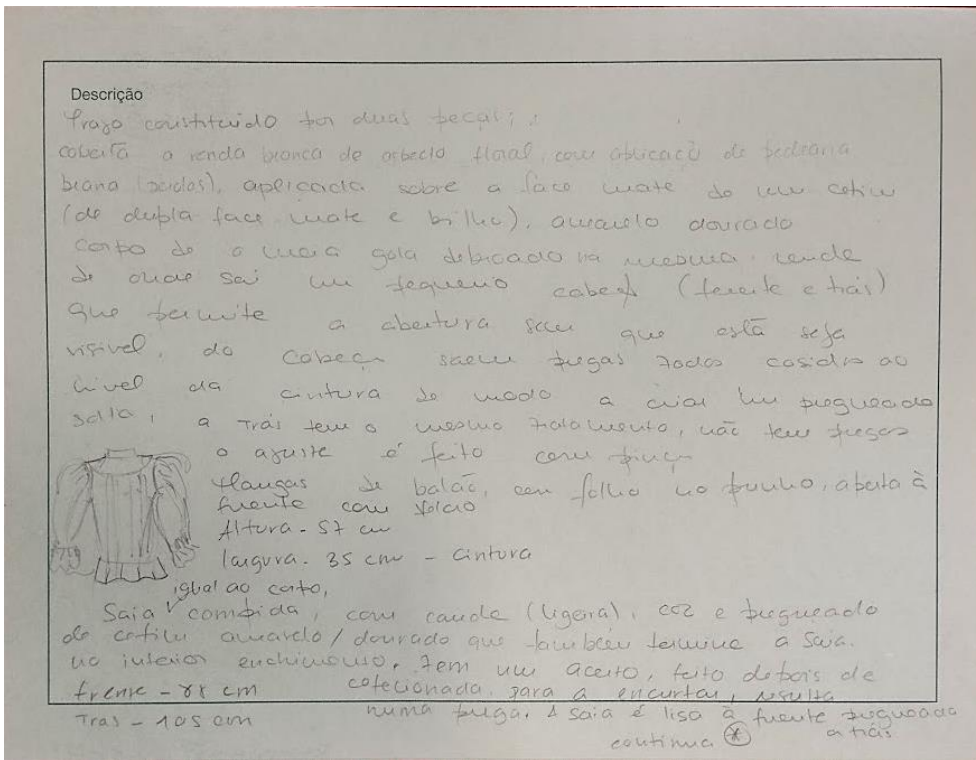 Descrição
Trajo constituido por duas peças;
coberta a renda branca de aspecto floral, com aplicação de pedraria
brana aplicada sobre a face mate de um cetim
(de dupla face mate e brilho), amarelo dourado
corpo de a meia gola debruado na mesma renda
de onde sai um pequeno cabeção (frente e trás)
que permite a abertura sem que esta seja
visivel, do cabeção saem pregas todas cosidas ao
nivel da cintura de modo a criar um pregueado
solto, a Trás tem o mesmo tratamento, não tem pregas
o ajuste é feito com pinças
Mangas de balão, com folho no punho, aberta à
frente com folho
Altura - 57 cm
largura. 35 cm - Cintura
igual ao corpo,
Saia comprida, com cauda (ligeira), cós e pregueado
de cetim amarelo/dourado que tambem termina a Saia.
no interior enchimento. Tem um acerto, feito depois de
confecionada, para a encurtar, resulta
frente - 88 cm
numa prega. A saia é lisa à frente pregueada
Tras - 105 cm
a trás
continua *